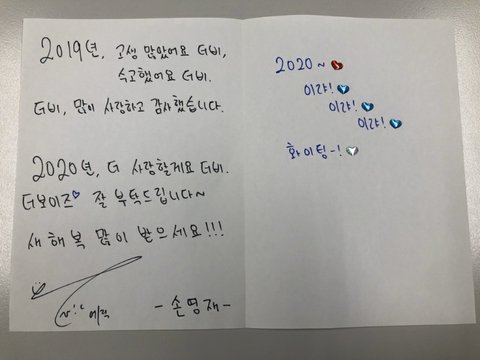 2019년, 고생 많았어요 더비,
수고했어요 더비.
더비, 많이 사랑하고 감사했습니다.
2020년, 더 사랑할게요 더비.
더보이즈♡ 잘 부탁드립니다~
새해 복 많이 받으세요!!!
에릭
- 손영재 -
2020~
이랴!
이랴!
이랴!
화이팅-!